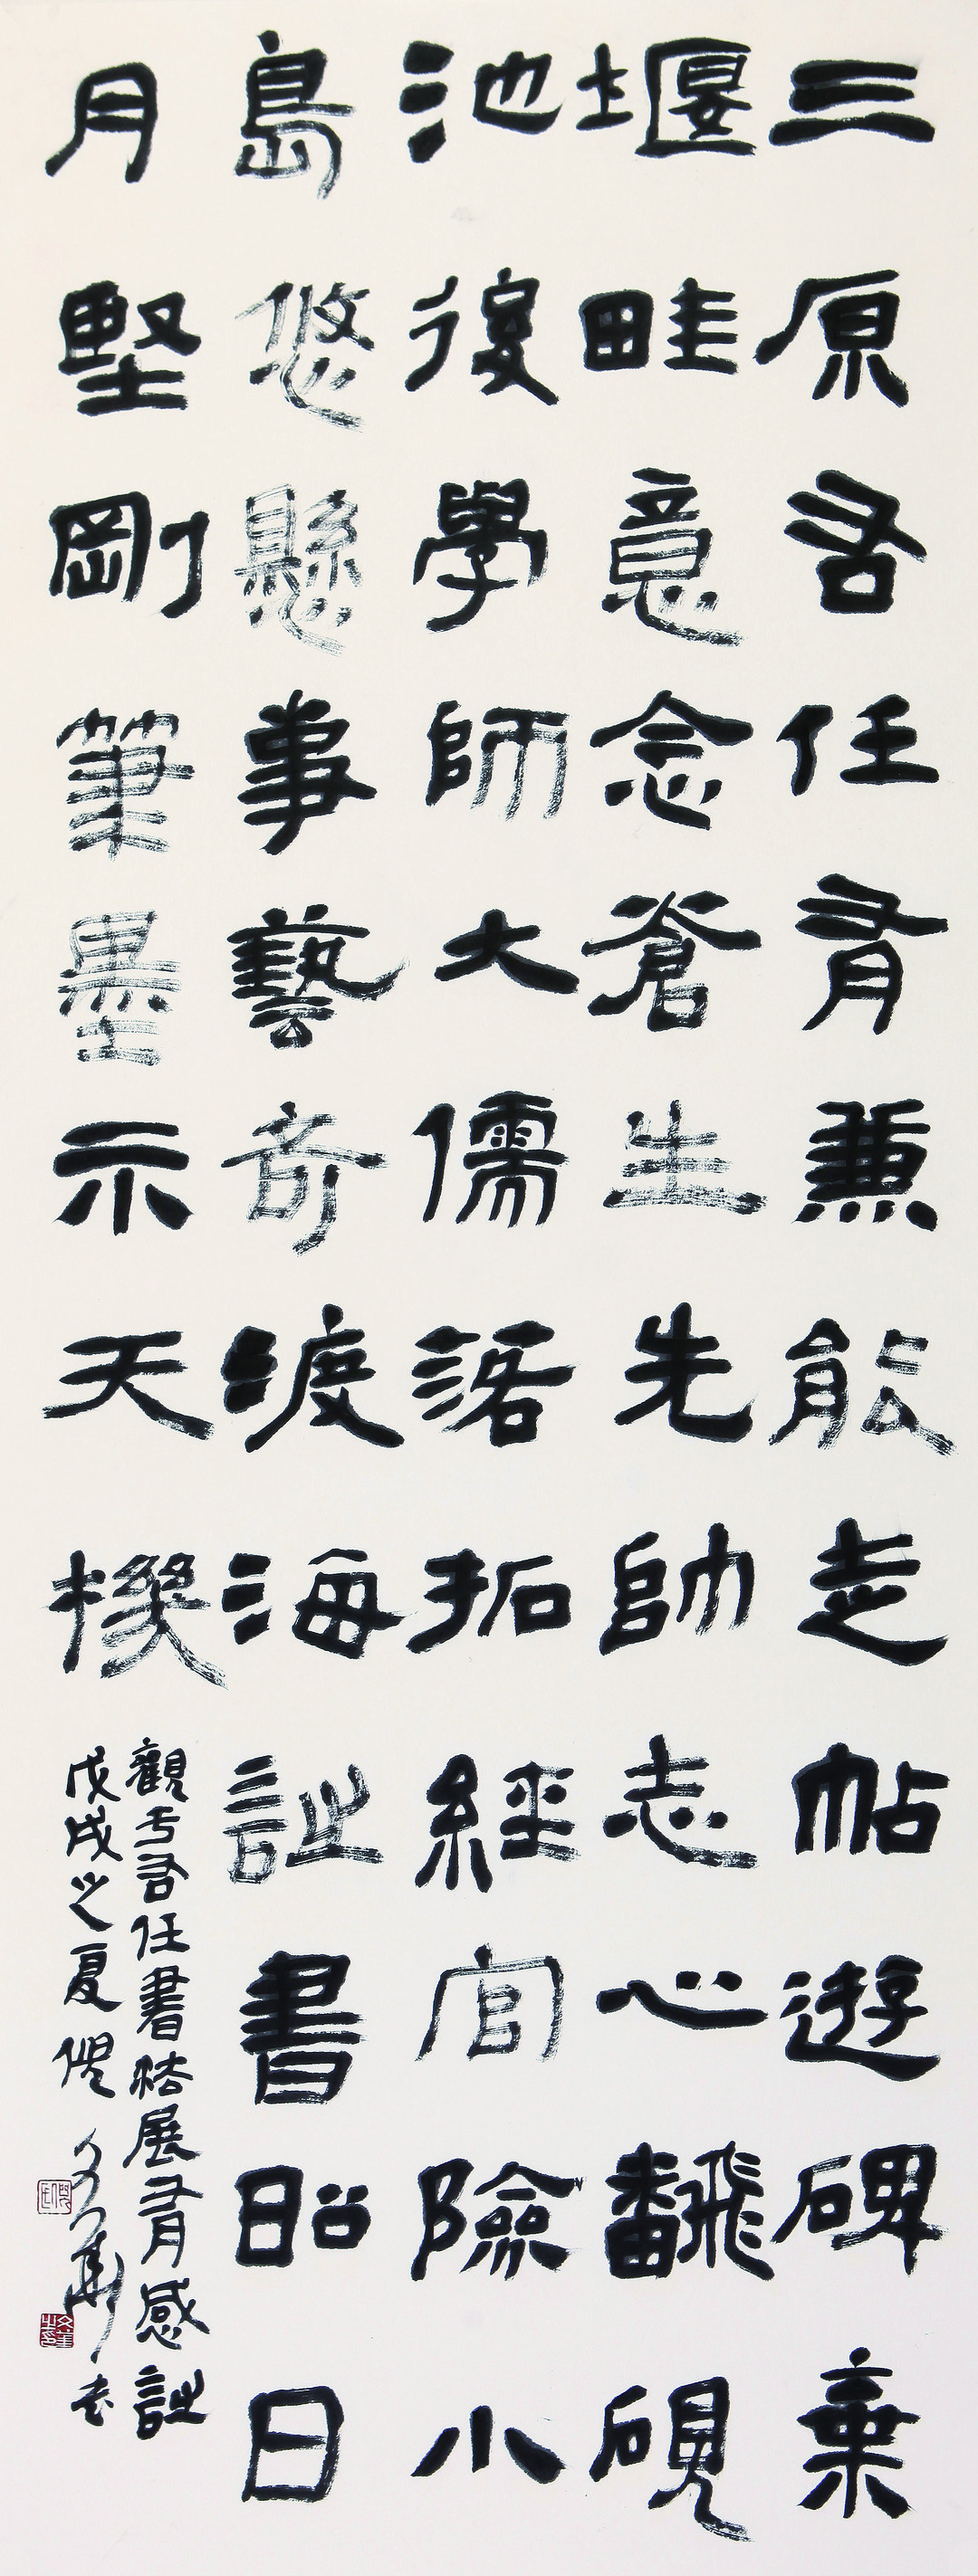 三原右任有兼能走帖遊碑棄
堰畦意念蒼生先帥志心飜硯
池後學師大儒落拓經官險小
島悠懸事藝奇渡海誌書昭日
月堅剛筆墨示天機
觀于右任書法展有感誌
戊戌之夏倪文華書